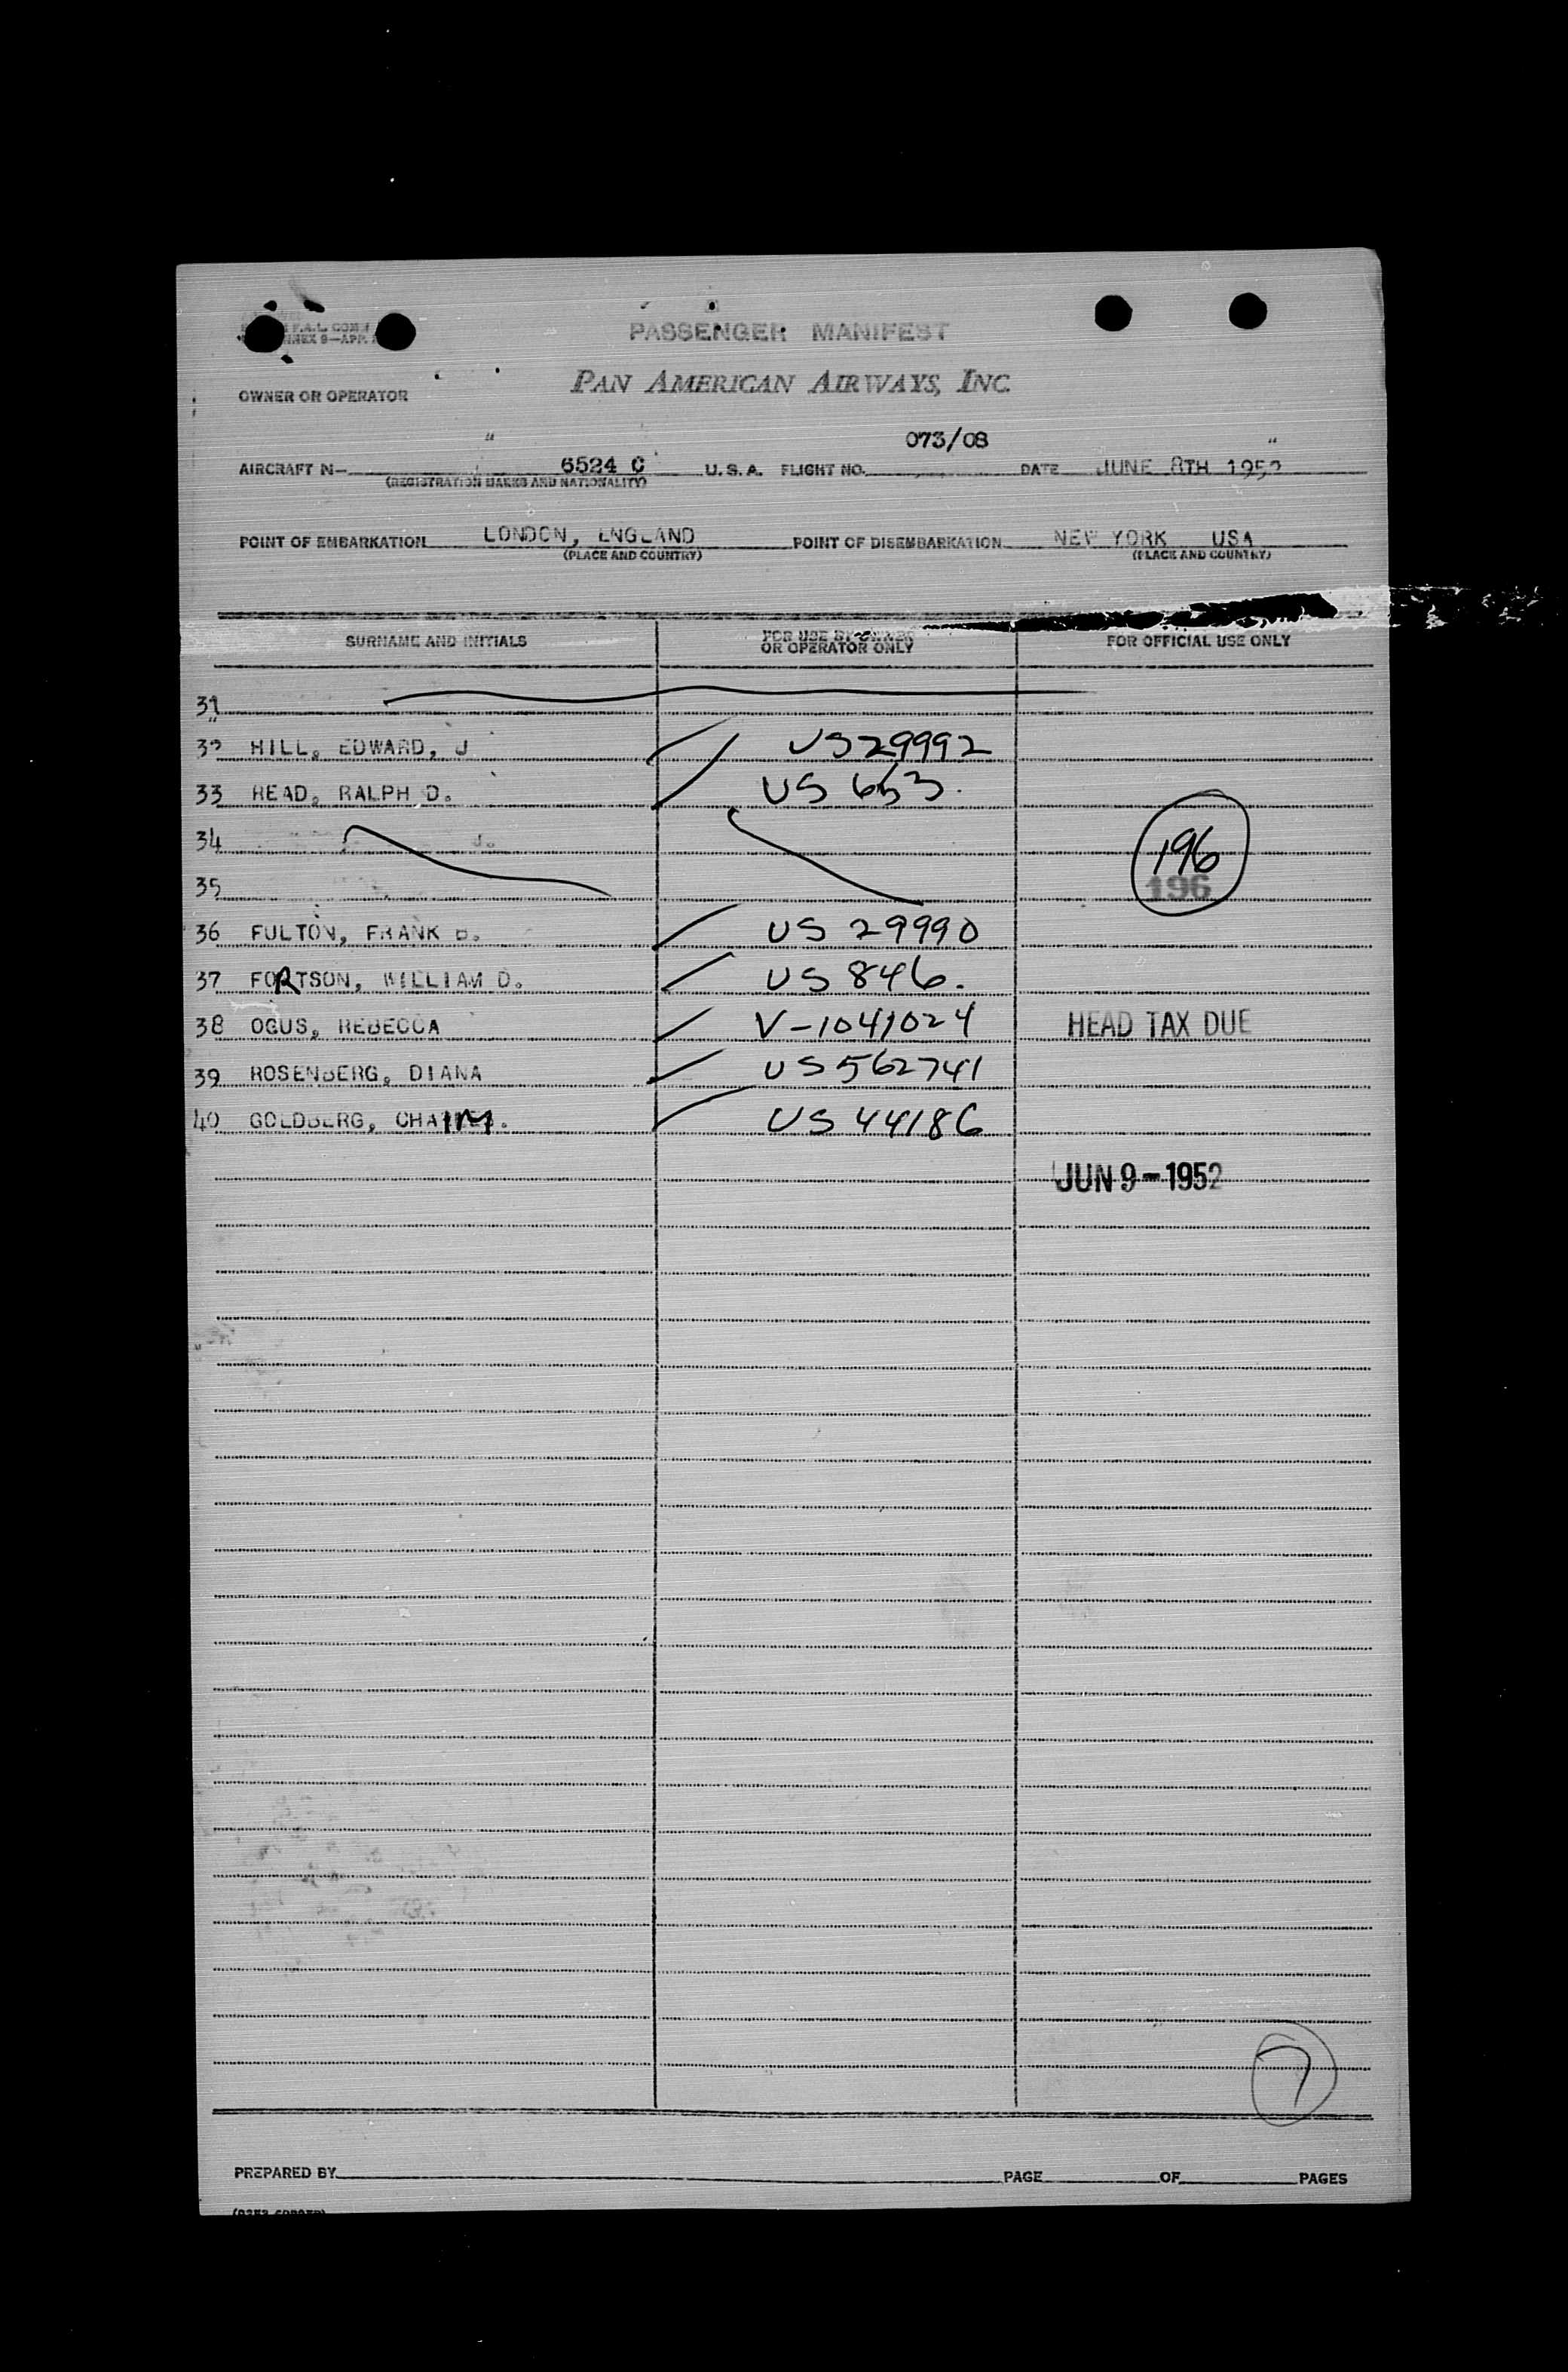 PASSENGER MANIFEST
PAN AMERICAN AIRWAYS, INC.
OWNER OR OPERATOR
073/08
AIRCRAFT N- 6524 C U.S.A. FLIGHT NO. DATE JUNE 8TH 1952
(REGISTRATION MARKS AND NATIONALITY)
POINT OF EMBARKATION LONDON, ENGLAND POINT OF DISEMBARKATION NEW YORK USA
(PLACE AND COUNTRY) (PLACE AND COUNTRY)
SURNAME AND INITIALS FOR USE BY OWNER OR OPERATOR ONLY FOR OFFICIAL USE ONLY
31
32 HILL, EDWARD, J US 29992
33 HEAD, RALPH D. US 653.
34 J. 196
35 196
36 FULTON, FRANK B. US 29990
37 FORTSON, WILLIAM D. US 846.
38 OGUS, REBECCA V-1041024 HEAD TAX DUE
39 ROSENBERG, DIANA US 562741
40 GOLDBERG, CHAIM. US 44186
JUN 9-1952
7
PREPARED BY PAGE OF PAGES